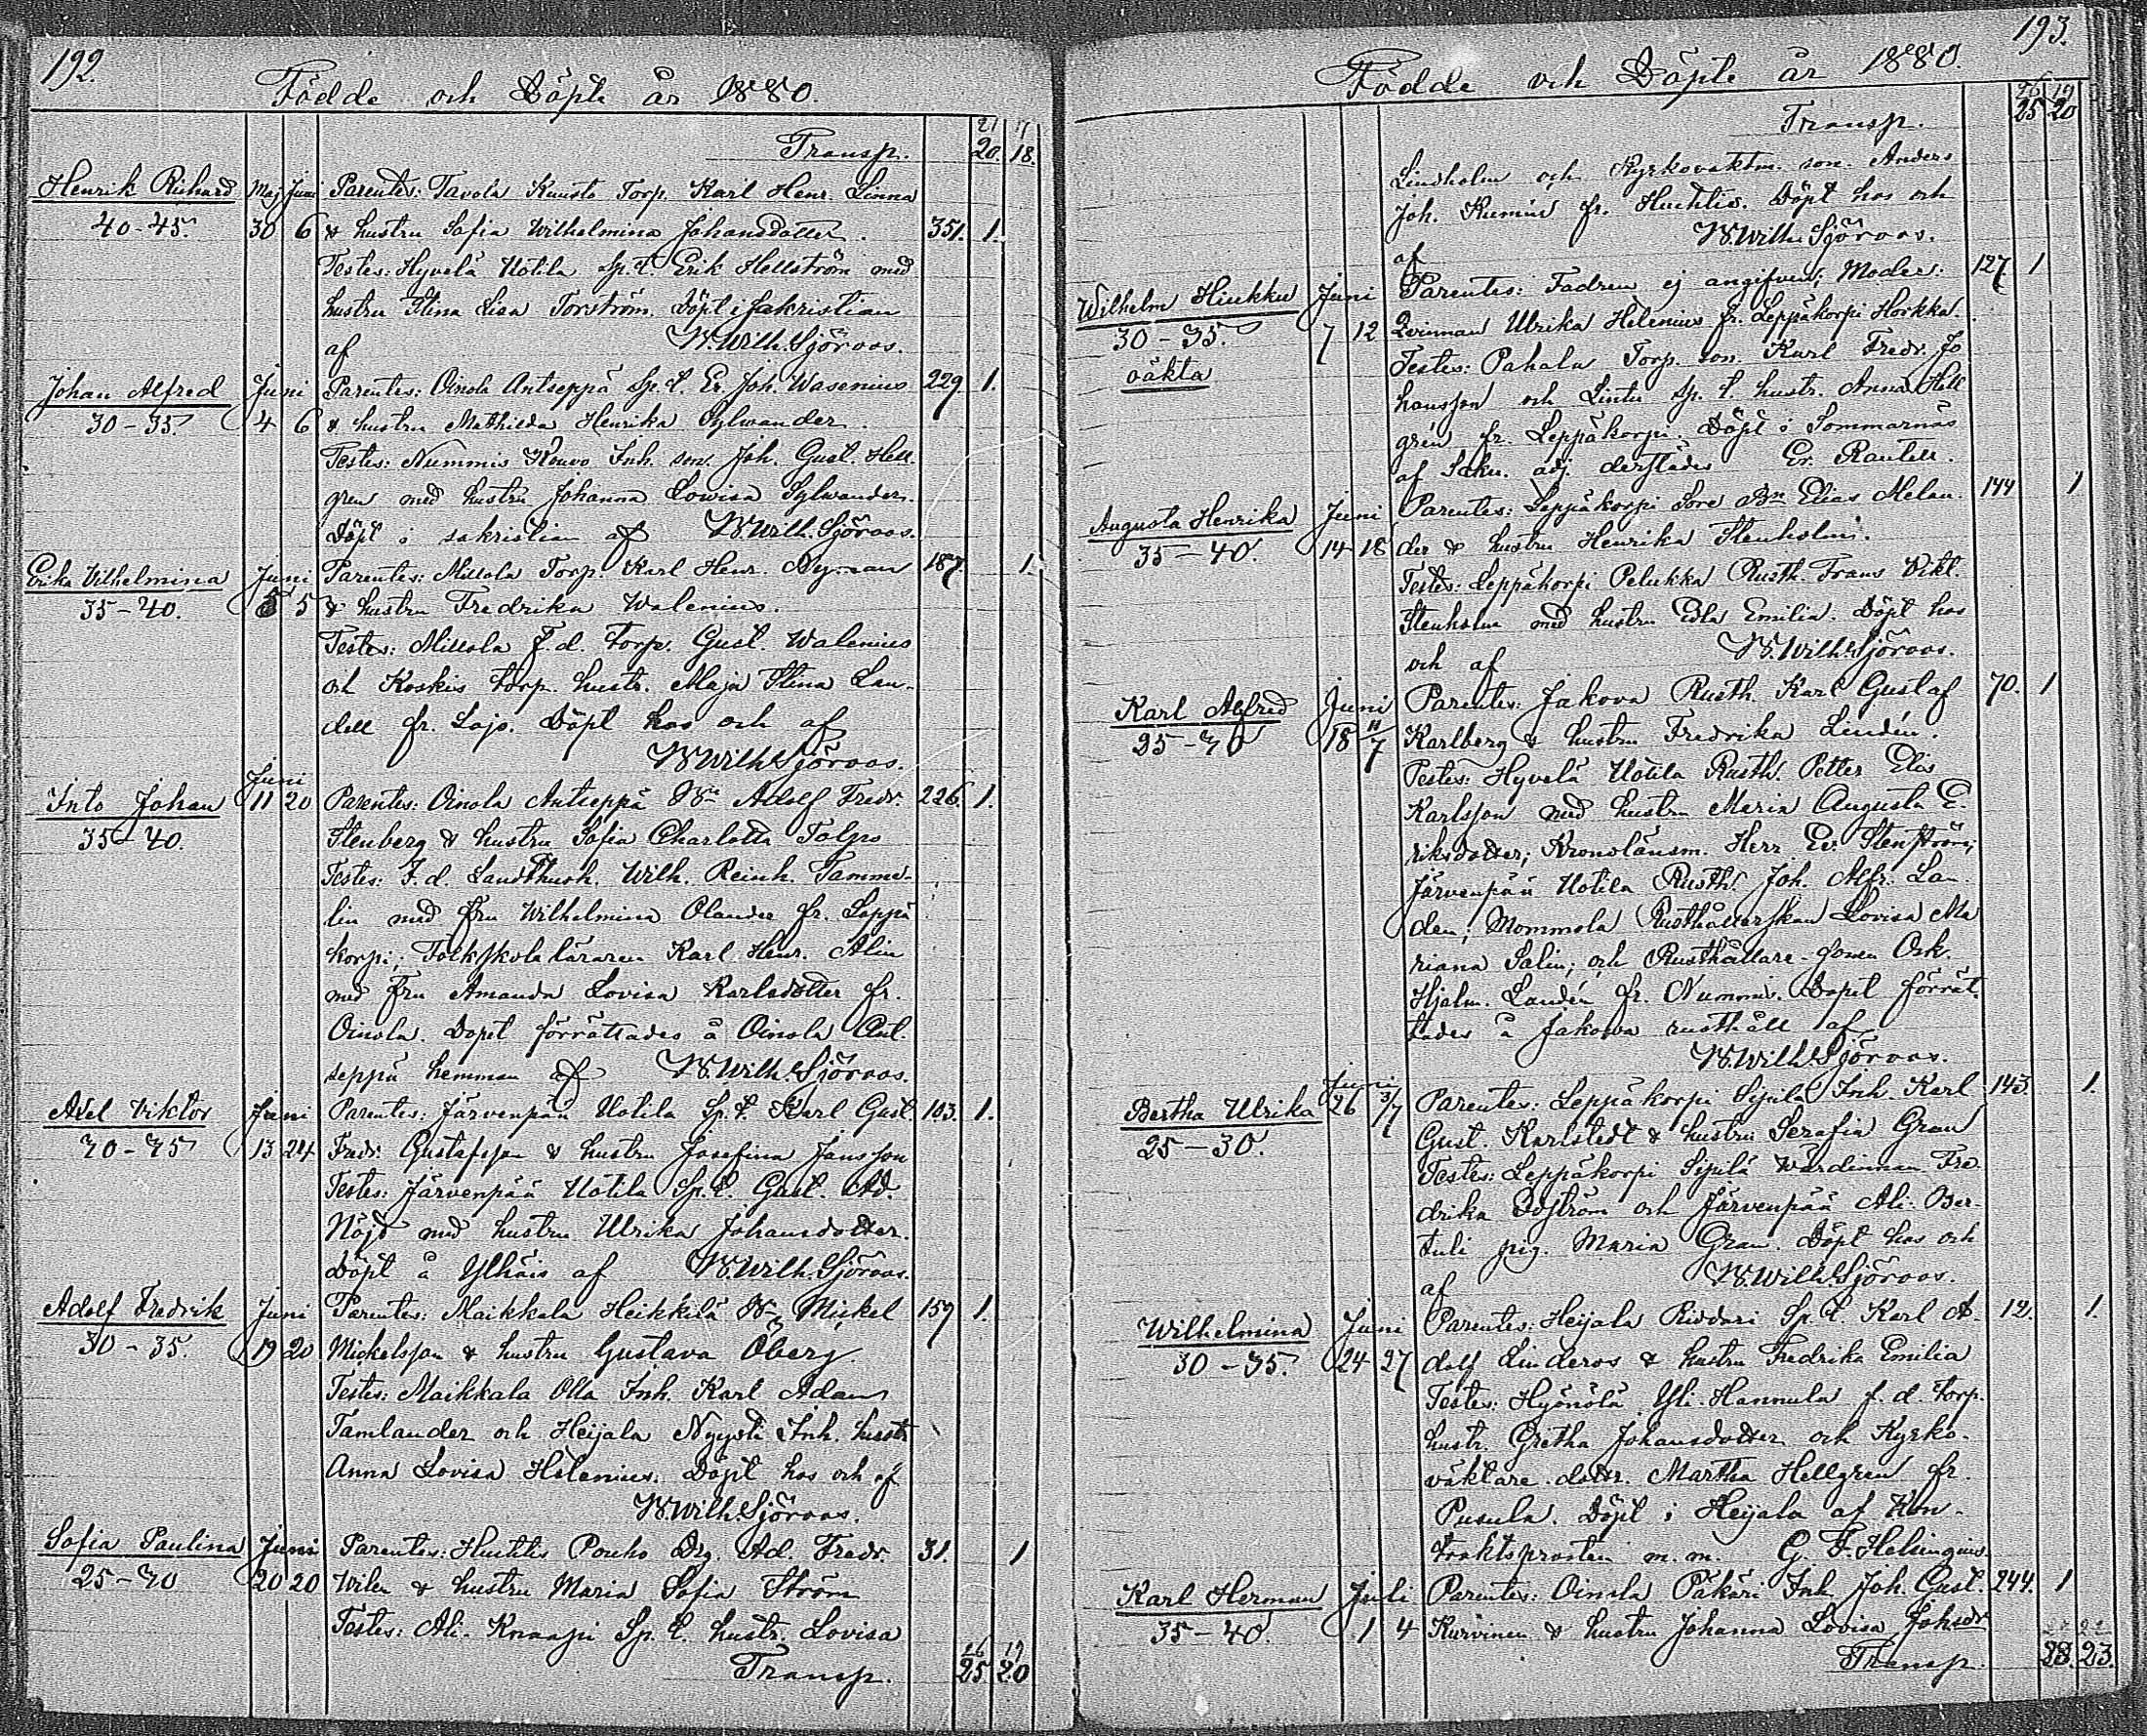 192.
Födde och Döpte år 1880.
21 17
Transp. 20. 18.
Henrik Richard Maj Juni Parentes: Tavola Kuusto Torp. Karl Henr. Linna
40-45. 30 6 & hustru Sofia Wilhelmina Johansdotter. 351. 1.
Testes: Hyvelä Uotila Sp. t. Erik Hellström med
hustru Stina Lisa Torström. Döpt i sakristian
af W. Wilh. Sjöroos.
Johan Alfred Juni Parentes: Oinola Antseppä Sp. t. Er. Joh. Wasenius 229. 1.
30-35. 4 6 & hustru Mathilda Henrika Sylwander.
Testes: Nummis Kouvo Inh. son. Joh. Gust. Hell-
gren med hustru Johanna Lowisa Sylwander.
Döpt i sakristian af W. Wilh. Sjöroos.
Erika Vilhelmina Juni Parentes: Millola Torp. Karl Henr. Nyman 187 1.
35-40. 5 5 & hustru Fredrika Walenius.
Testes: Millola F. d. Torp. Gust. Walenius
och Koskis torp. hustr. Maja Stina Lan-
dell fr. Lojo. Döpt hos och af
W. Wilh. Sjöroos.
Juni
Into Johan 11 20 Parentes: Oinola Antseppä Bn Adolf Fredr. 226. 1.
35-40. Stenberg & hustru Sofia Charlotta Tolpo
Testes: F. d. Landthush. Wilh. Reinh. Tamme-
lin med fru Wilhelmina Olander fr. Leppä
korpi; Folkskoleläraren Karl Henr. Alin
med fru Amanda Lovisa Karlsdotter fr.
Oinola. Dopet förrättades å Oinola Ant-
seppä hemman af W. Wilh. Sjöroos.
Axel Viktor Juni Parentes: Järvenpää Uotila Sp. t. Karl Gust. 103. 1.
30-35 13 24 Fredr. Gustafsson & hustru Josefina Jansson
Testes: Järvenpää Uotila Sp. t. Gust. Ad.
Nöjd med hustru Ulrika Johansdotter.
Döpt å Ylhäis af W. Wilh. Sjöroos.
Adolf Fredrik Juni Parentes: Maikkala Heikkilä Bn Mickel 159 1.
30-35. 19 20 Mickelsson & hustru Gustava Öberg.
Testes: Maikkala Olla Inh. Karl Adam
Tamlander och Heijala Nyysti Inh. hustr
Anna Lovisa Helenius. Döpt hos och af
W. Wilh. Sjöroos.
Sofia Paulina Juni Parentes: Huhtis Pouho Drg. Ad. Fredr. 31. 1
25-30 20 20 Wilen & hustru Maria Sofia Ström
Testes: Ali-Knaapi Sp. t. hustr. Lovisa
26 19
Transp. 25. 20
193.
Födde och Döpte år 1880.
26 19
Transp. 25 20
Lindholm och Kyrkovaktm. son. Anders
Joh. Kumin fr. Huhtis. Döpt hos och
af W. Wilh. Sjöroos.
Wilhelm Hiukku Juni Parentes: Fadren ej angifven; Moder: 127 1
30-35. 7 12 Qvinnan Ulrika Helenius fr. Leppäkorpi Horkka.
oäkta Testes: Pahala Torp. son. Karl Fredr. Jo
hansson och Lintu Sp. t. hustr. Anna Hell
grén fr. Leppäkorpi. Döpt i Sommarnäs
af Sakn. adj. derstädes Er. Rantell.
Augusta Henrika Juni Parentes: Leppäkorpi Sore Bn Elias Melan- 144 1
35-40. 14 18 der & hustru Henrika Stenholm.
Testes: Leppäkorpi Pelukka Rusth. Frans Vikt.
Stenholm med hustru Edla Emilia. Döpt hos
och af W. Wilh. Sjöroos.
Karl Alfred Juni Parentes: Jakova Rusth. Karl Gustaf 70. 1
25-30 18 11/7 Karlberg & hustru Fredrika Lindén.
Testes: Hyvelä Uotila Rusth. Petter Elis
Karlsson med hustru Maria Augusta E-
riksdotter; Kronolänsm. Herr Er. Stenström;
Järvenpää Uotila Rusth. Joh. Alfr. Lan-
den; Mommola Rusthållarskan Lovisa Ma
riana Salin; och Rusthållare-sonen Osk.
Hjalm. Landén fr. Nummis. Dopet förrät-
tades å Jakova rusthåll af
W. Wilh. Sjöroos.
Bertha Ulrika Juni 26 3/7 Parentes: Leppäkorpi Sipilä Inh. Karl 143. 1.
25-30. Gust. Karlstedt & hustru Serafia Gran
Testes: Leppäkorpi Sipilä Wärdinnan Fre
drika Boström och Järvenpää Ali-Ber-
tuli pig. Maria Gran. Döpt hos och
af W. Wilh. Sjöroos.
Wilhelmina Juni Parentes: Heijala Riddari Sp. t. Karl A- 12. 1.
30-35. 24 27 dolf Linderos & hustru Fredrika Emilia
Testes: Hyönölä Yli-Hannula f. d. torp.
hustr. Gretha Johansdotter och Kyrko-
väktare-dottr. Martha Hellgren fr.
Pusula. Döpt i Heijala af Kon-
traktsprosten m. m. G. F. Helsingius.
Karl Herman Juli Parentes: Oinola Päkäri Inh. Joh. Gust. 244. 1
35-40. 1 4 Kurvinen & hustru Johanna Lovisa Johsdr
Transp. 28. 23.